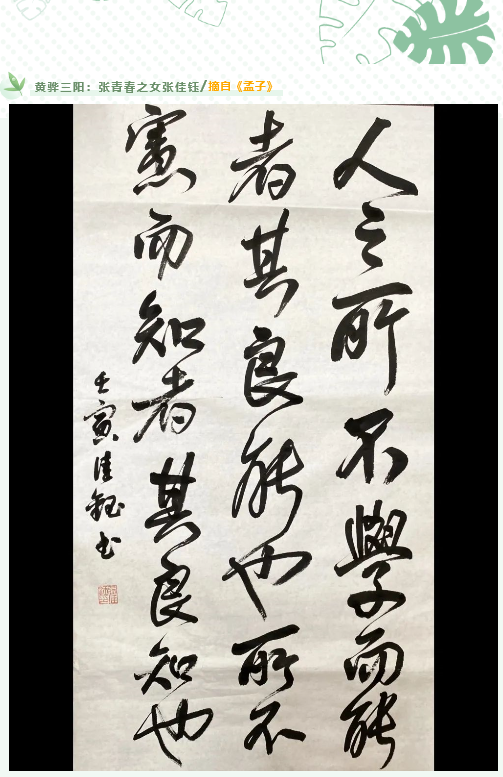 黄骅三阳：张青春之女张佳钰/摘自《孟子》
人之所不學而能
者其良能也所不
慮而知者其良知也
壬寅佳鈺书